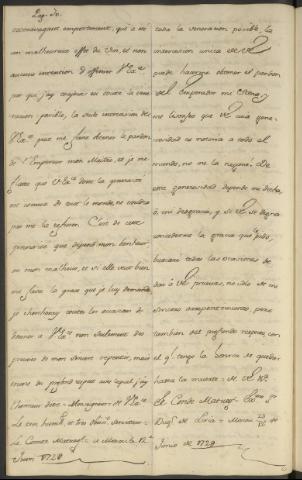 Pag. 50.
extravagant emportement, qui a été
un malheureux effet du vin, et non
aucune intention d'offenser V.
par que j'ay toujours eu toute la vene-
ration possible, la seule intercession de
V. peut me faire obtenir le pardon
de l'Empereur mon Maitre, et je me
flatte que V. dont la generosité
est connüe de tout le monde, ne voudra
pas me la refuser. C'est de cette
generosité que depend mon bonheur
ou mon malheur, et si elle veut bien
me faire la grace que je luy demande,
je chercheray toutes les occasions de
donner a V. non seulement des
preuves de mon sincere repentir, mais
encore du profond respect avec lequel j'ay
l'honneur d'etre = Monseigneur = de V.
Le tres humble, et tres obeissant serviteur =
Le Comte = Moscou le 12
Juin 1728
toda la veneracion posible, la
intercesion unica de VE
puede hacerme obtener el perdon
del Emperador mi Amo, y
me lisonjeo que VE cuia gene-
rosidad es notoria a todo el
mundo, no me la negará. De
esta generosidad depende mi dicha,
ó mi desgracia, y si VE se digna
concederme la gracia que pido,
buscaré todas las ocasiones de
dar á VE pruevas, no solo de mi
sincero arrepentimiento, pero
tambien del profundo respeto con
el qual tengo la honrra de quedar
hasta la muerte = de VE
El Conde
Duq. de Liria = Moscou
Junio de 1728